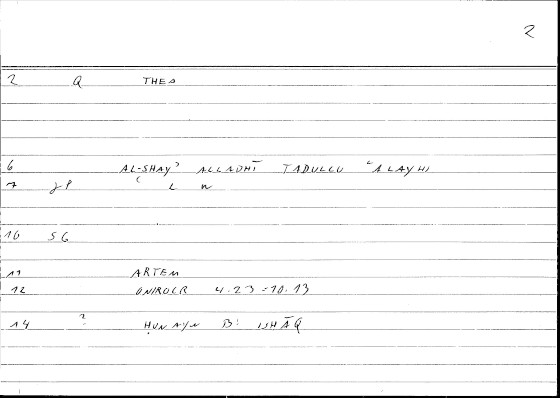 2
2 Q THEO
6 AL-SHAYʾ ALLADHĪ TADULLU ʿALAYHI
7 gP L n
10 SG
11 ARTEM
12 ONIROCR 4.23 = 10.13
14 ? ḤUNAYN B. ISḤĀQ